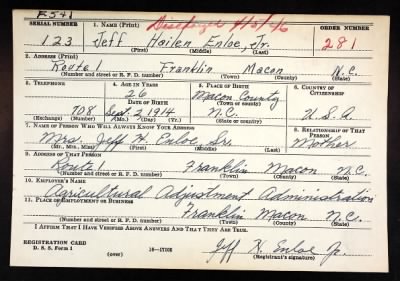 E541
SERIAL NUMBER 1. NAME (Print) Discharged ORDER NUMBER
123 Jeff Hailen Enloe, Jr. 281
(First) (Middle) (Last)
2. ADDRESS (Print)
Route 1 Franklin Macon N.C.
(Number and street or R. F. D. number) (Town) (County) (State)
3. TELEPHONE 4. AGE IN YEARS 5. PLACE OF BIRTH 6. COUNTRY OF CITIZENSHIP
26 Macon County
DATE OF BIRTH (Town or county)
708 Sept. 2 1914 N.C. U.S.A.
(Exchange) (Number) (Mo.) (Day) (Yr.) (State or country)
7. NAME OF PERSON WHO WILL ALWAYS KNOW YOUR ADDRESS 8. RELATIONSHIP OF THAT PERSON
Mrs. Jeff H. Enloe Sr. Mother
(Mr., Mrs., Miss) (First) (Middle) (Last)
9. ADDRESS OF THAT PERSON
Route 1 Franklin Macon N.C.
(Number and street or R. F. D. number) (Town) (County) (State)
10. EMPLOYER'S NAME
Agricultural Adjustment Administration
11. PLACE OF EMPLOYMENT OR BUSINESS
Franklin Macon N.C.
(Number and street or R. F. D. number) (Town) (County) (State)
I AFFIRM THAT I HAVE VERIFIED ABOVE ANSWERS AND THAT THEY ARE TRUE.
REGISTRATION CARD
D. S. S. Form 1 (over) Jeff H. Enloe Jr.
(Registrant's signature)